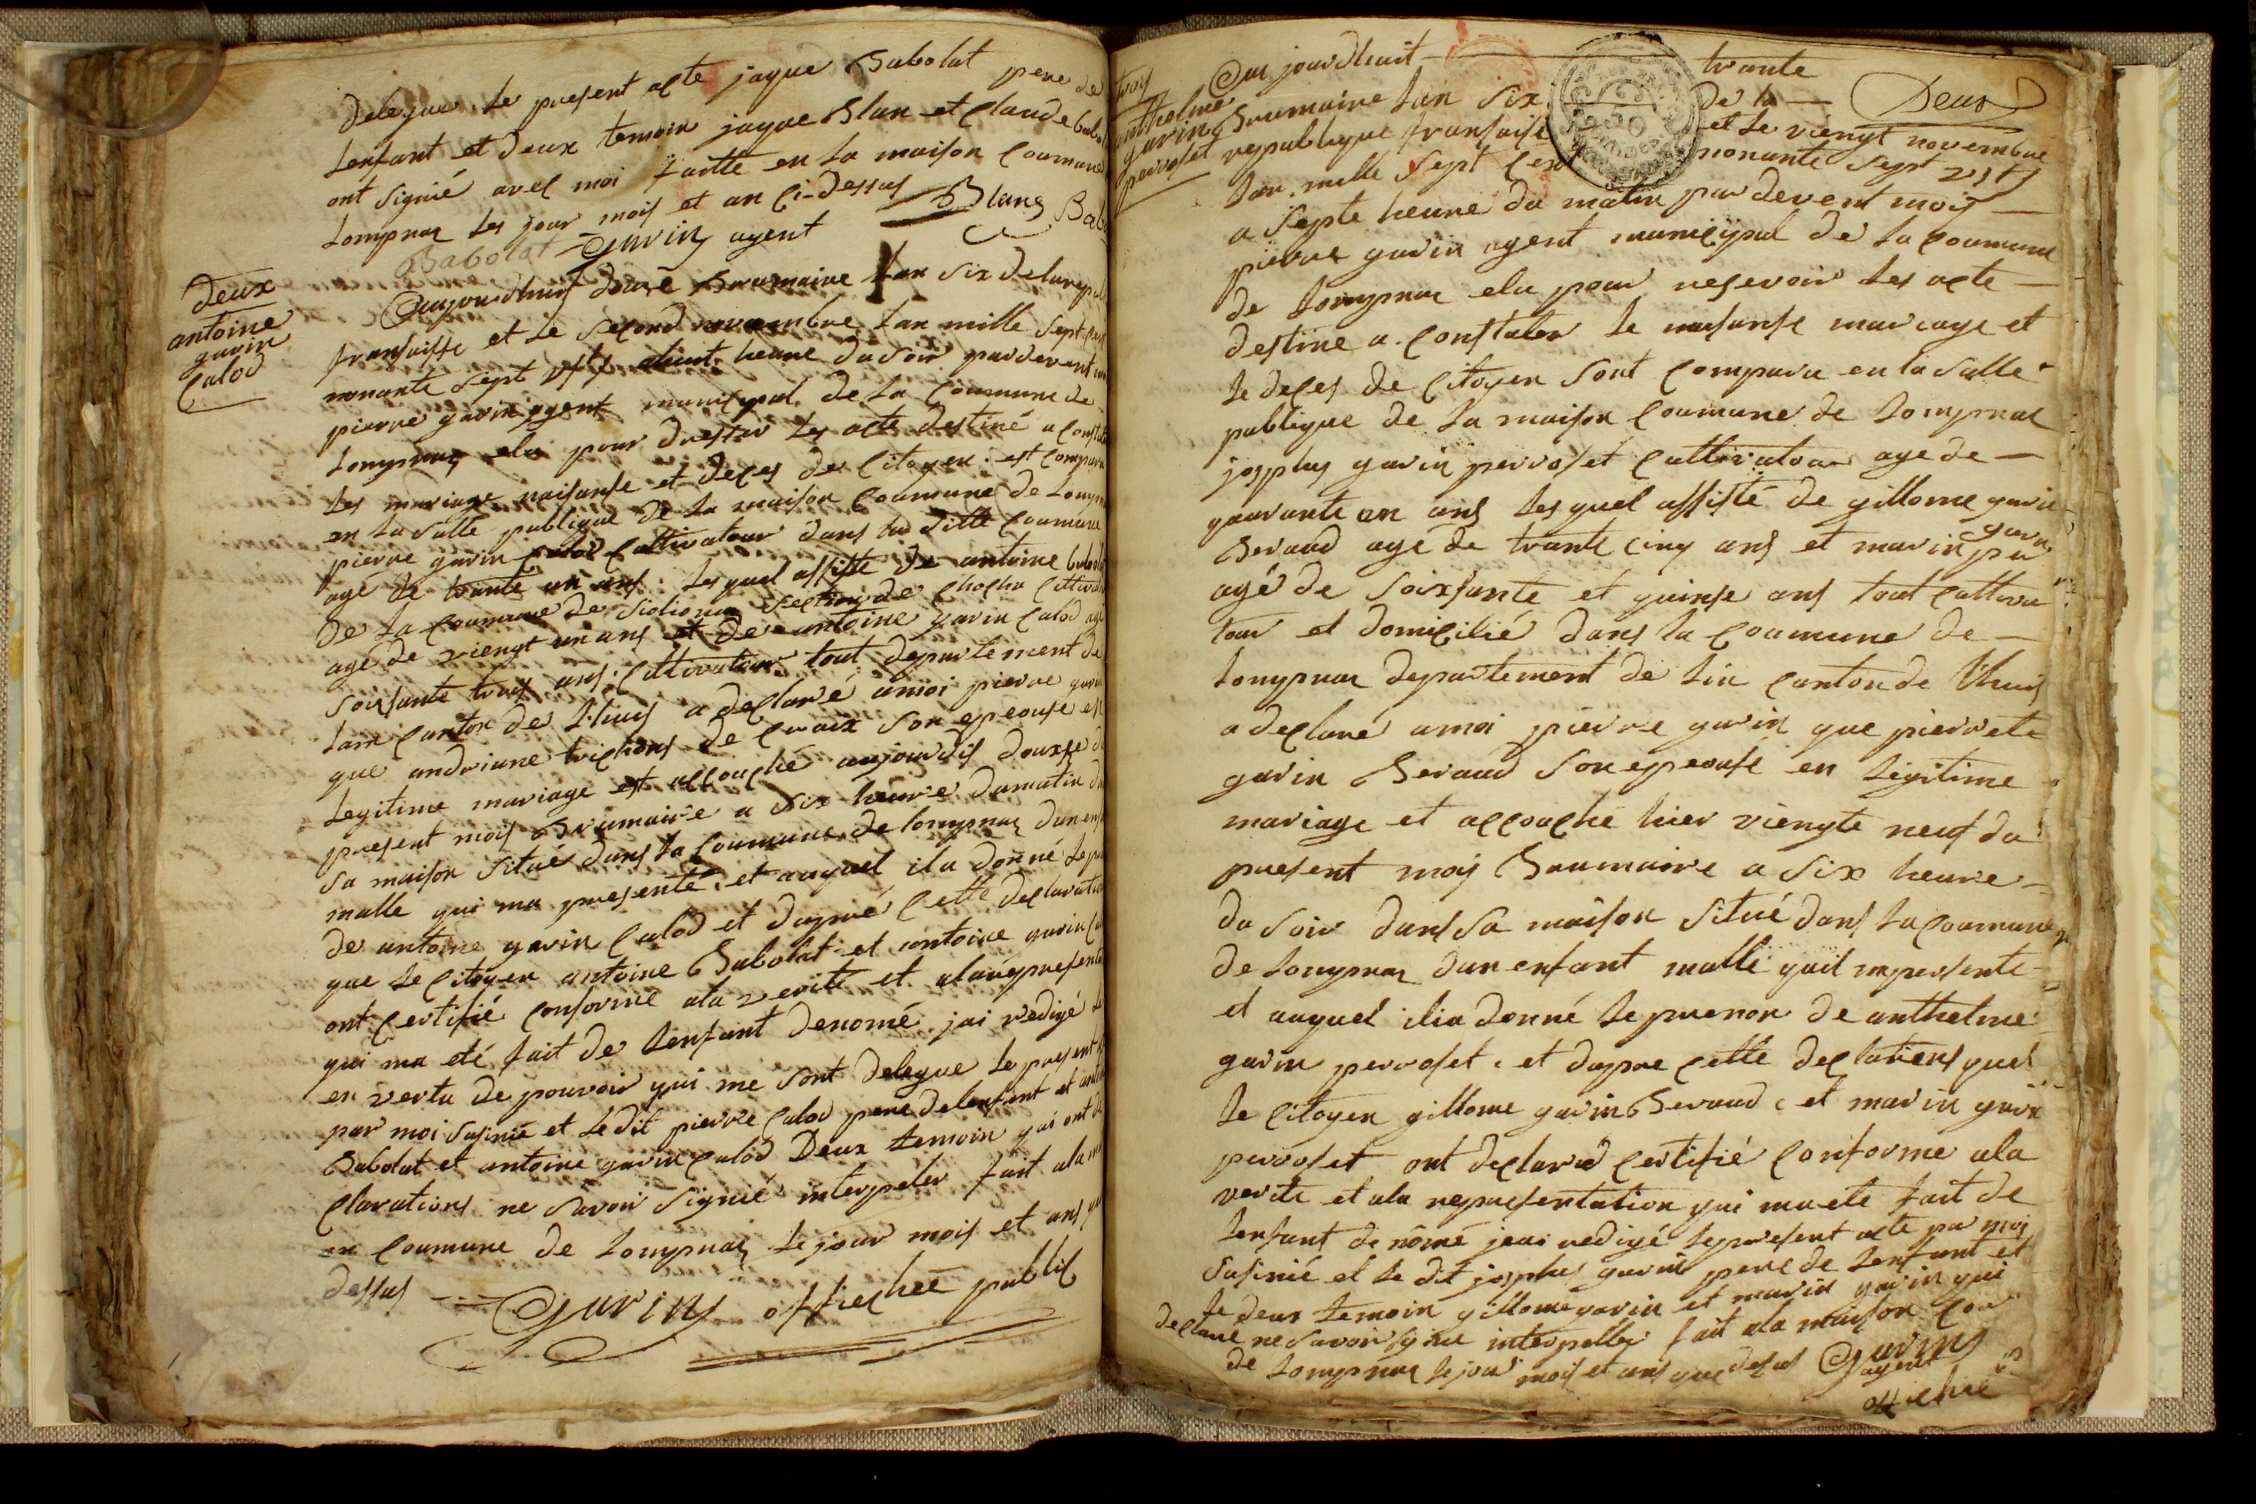 delegue le present acte jaque Babolat pere de
lenfant et deux temoin jaque Blan et Claude babol
ont signié avec moi faitte en la maison Coumune
Lompnas les jour mois et an ci-dessus Blanc Bab
Babolat Gurin agent
deux
antoine
gurin
Calod
Aujourdhuy douze Brumaire lan six de larepub
fransaisse et le second novembre lan mille sept cent
nonante sept vst heure du soir pardevent
pierre gurin agent municypal de la Coumune de
Lompnas elu pour dresser les acte destiné a Consta
les mariage naisanse et deces des Citoyen est Comparu
en la salle publique de la maison Coumune de Lompn
pierre gurin Calod Cultivatour dans la ditte Coumune
agé de trante un ans lesquel assiste de antoine babol
de la Coumune de section de Cultivat
agé de viengt un ans et de antoine gurin Calod agé
soissante trois ans Cultivatour tout departement de
lain Canton de Lhuis a declaré amoi pierre gurin
que andriane son epeouse en
legitime mariage est accouché aujourdis douzse du
present mois Brumaire a six heure dumatin dans
sa maison situé dans la Coumune de lompnas dun enf
malle qui ma presenté et auquel il a donné le pre
de antoine gurin Calod et dapré cette declaration
que le Citoyen antoine Babolat et antoine gurin Ca
ont Certifié Conforme ala verité et alarepresenta
qui ma eté fait de lenfant denomé jai redigé
en vertu de pouvoir qui me sont delegue le present
par moi susinié et ledit pierre Calod pere delenfant et
Babolat et antoine gurin Calod Deux temoin qui ont de
Clarations ne savoir signié interpeler fait ala m
on Coumune de Lompnas le jour mois et ans que
dessus Gurin officheé public
trois
anthelme
gurin
perroset
Deux
Au jourdhuit trante
Brumaire lan six de la
republique fransaise et le viengt novembre
lan mille sept cent nonante sept vst
a septe heure du matin par devent mois
pierre gurin agent municypal de la Coumune
de Lompnas elu pour resevoir les acte
destine a Constater le naisanse mariage et
le deces de Citoyen sont Comparu en la salle
publique de la maison Coumune de Lompnas
josphes gurin perroset Cultivatour age de
quarante an ans lesquel assisté de gillome gurin
Beraud agé de trante cinq ans et marin gurin pe
agé de soixsante et quinse ans tout Cultiva
tour et domicilié dans la Coumune de
Lompnas departement de lin Canton de lhuis
a declaré amoi pierre gurin que pierrete
gurin Beraud son epeouse en legitime
mariage et accouché hier viengte neuf du
present mois Brumaire a six heure
du soir dans sa maison situé dans la Coumune
de Lompnas dun enfant malle quil mpresente
et auquel ilia donné le prenon de anthelme
gurin perroset et dapre cette declations quel
le Citoyen gillome gurin Beraud et marin gurin
perroset ont declaré Certifié Conforme ala
verite et ala representation qui maete fait de
lenfant denômé jeai redigé lepresent acte par moi
susinié et le dit josphes gurin pere de lenfant et
le deux temoin gillome gurin et marin gurin qui
declare ne savoir signié interpeller fait ala maison Cou
de Lompnas lejour mois et ans que desus Gurin
agent
officheé